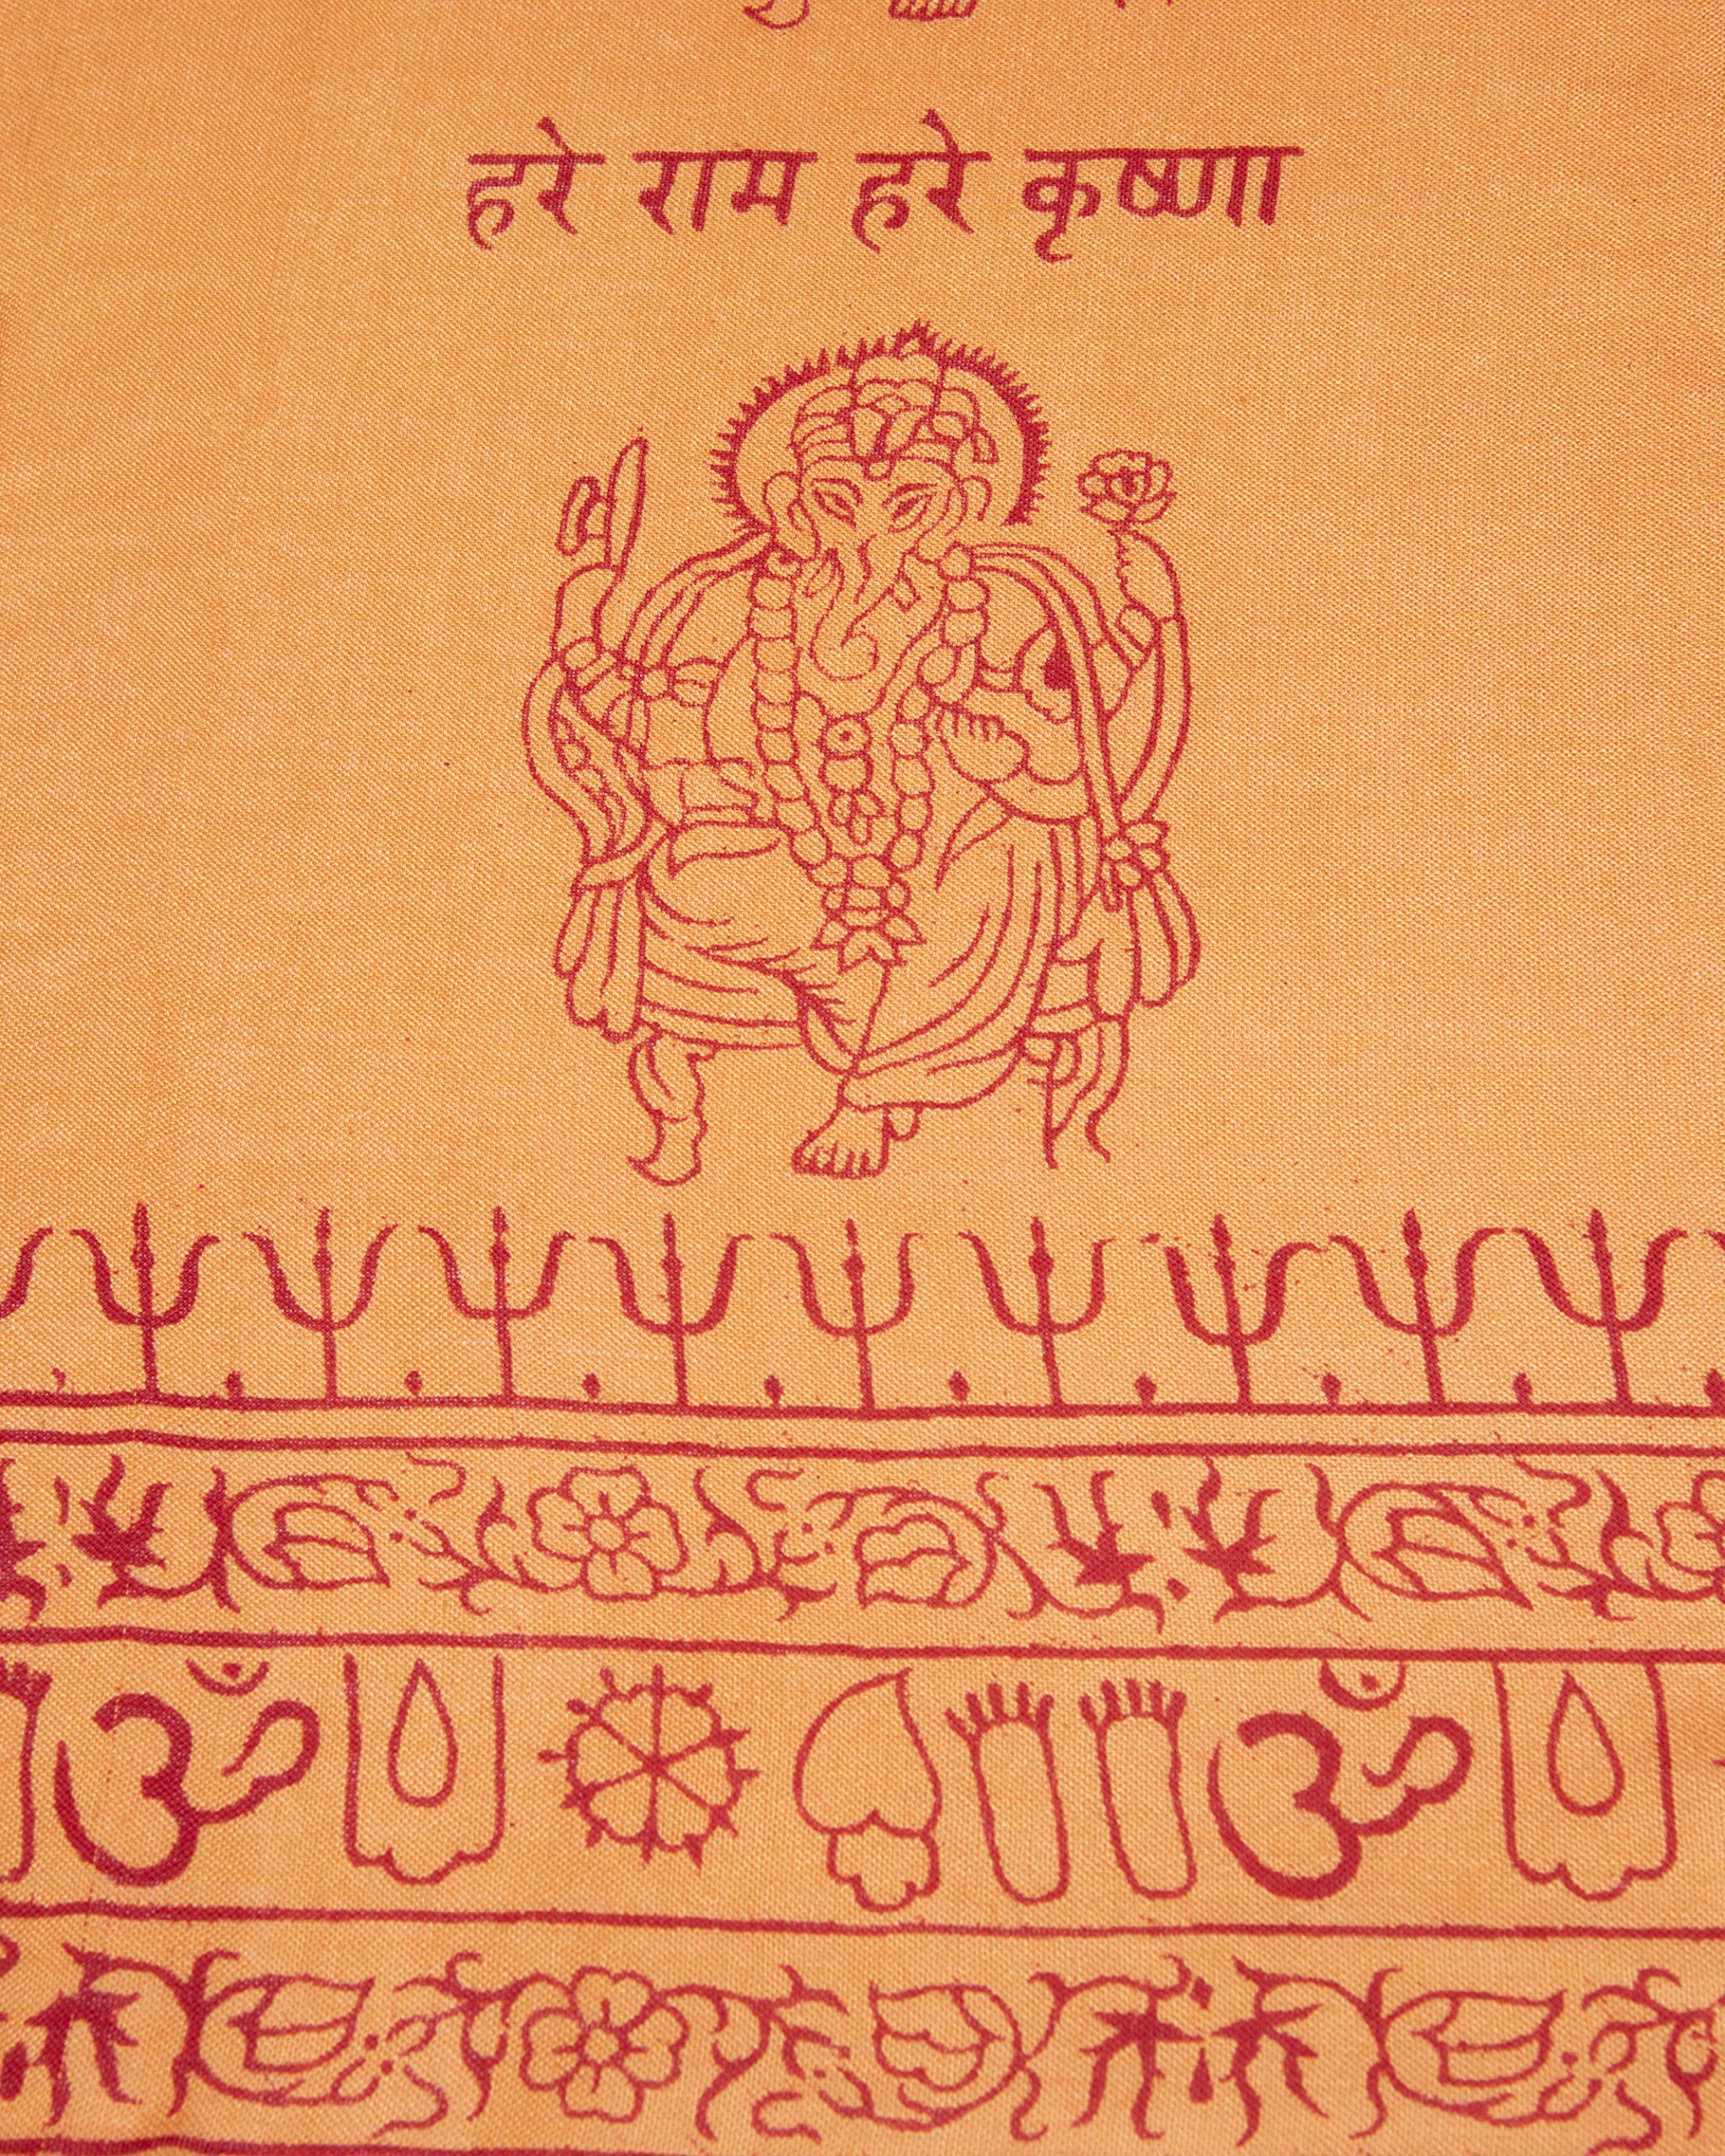 हरे राम हरे कृष्णा
ॐ ॐ